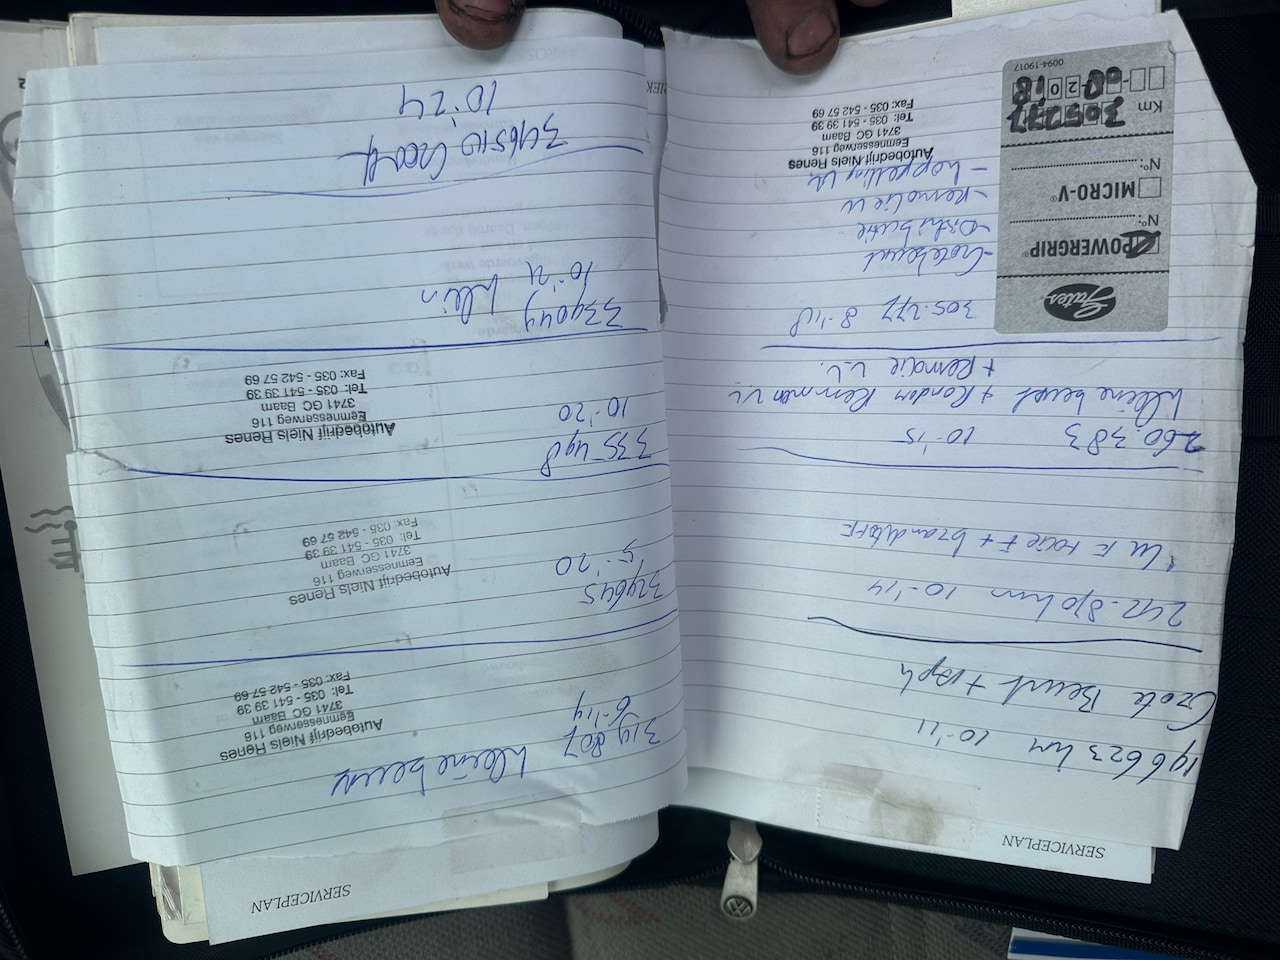 SERVICEPLAN
196623 km 10-'11
Grote Beurt +
242.810 km 10-'14
260.383 10-'15
kleine beurt +
+ Remolie V.V.
305.277 8-'18
-Grote beurt
-Distributie
-Remolie
-koppeling
Autobedrijf Niels Renes
Eemnesserweg 116
3741 GC Baarn
Tel: 035 - 541 39 39
Fax: 035 - 542 57 69
Gates
POWERGRIP®
N°:
MICRO-V®
N°:
Km 305277
2018
0094-19017
SERVICEPLAN
314.807 kleine beurt
Autobedrijf Niels Renes
Eemnesserweg 116
3741 GC Baarn
Tel: 035 - 541 39 39
Fax: 035 - 542 57 69
324645
5-'20
Autobedrijf Niels Renes
Eemnesserweg 116
3741 GC Baarn
Tel: 035 - 541 39 39
Fax: 035 - 542 57 69
335498
10-'20
Autobedrijf Niels Renes
Eemnesserweg 116
3741 GC Baarn
Tel: 035 - 541 39 39
Fax: 035 - 542 57 69
339044 klein
10-'21
346510 Groot
10-'24